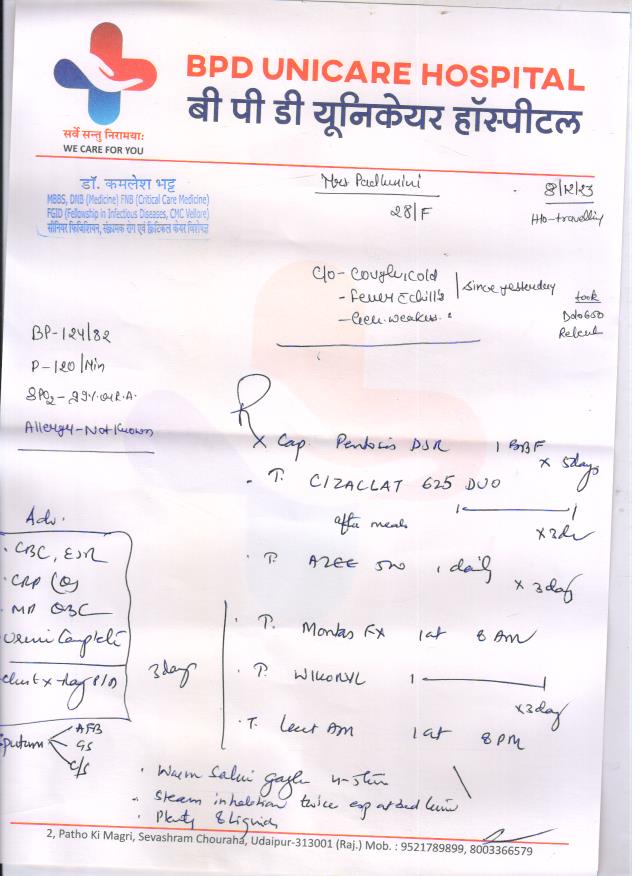 BPD UNICARE HOSPITAL
बी पी डी यूनिकेयर हॉस्पीटल
सर्वे सन्तु निरामयाः
WE CARE FOR YOU
डॉ. कमलेश भट्ट
MBBS, DNB (Medicine) FNB (Critical Care Medicine)
FGID (Fellowship in Infectious Diseases, CMC Vellore)
सीनियर फिजिशियन, संक्रामक रोग एवं क्रिटिकल केयर विशेषज्ञ
Mrs Padmini
28/F
8/12/23
H/o-travelling
C/o - Cough & cold
- Fever c chills
- Gen. weakness
since yesterday
took
Dolo 650
BP-124/82
P-120/Min
SPO2-99% on R.A.
Allergy-Not Known
R
x Cap. DSR 1 BBF x 5days
- T. 625 DUO
after meals
x 3d
- T. AZEE 500 1 daily x 3day
- T. Montas FX 1 at 8 AM
- T. WIKORYL 1 x 3day
- T. AM 1 at 8 PM
3days
Adv.
- CBC, ESR
- CRP (Q)
- MP QBC
Urine Complete
Chest x-ray P/A
Sputum
AFB
GS
C/S
- Warm Saline gargle
- Steam inhalation twice at bed time
- Plenty liquids
2, Patho Ki Magri, Sevashram Chouraha, Udaipur-313001 (Raj.) Mob. : 9521789899, 8003366579